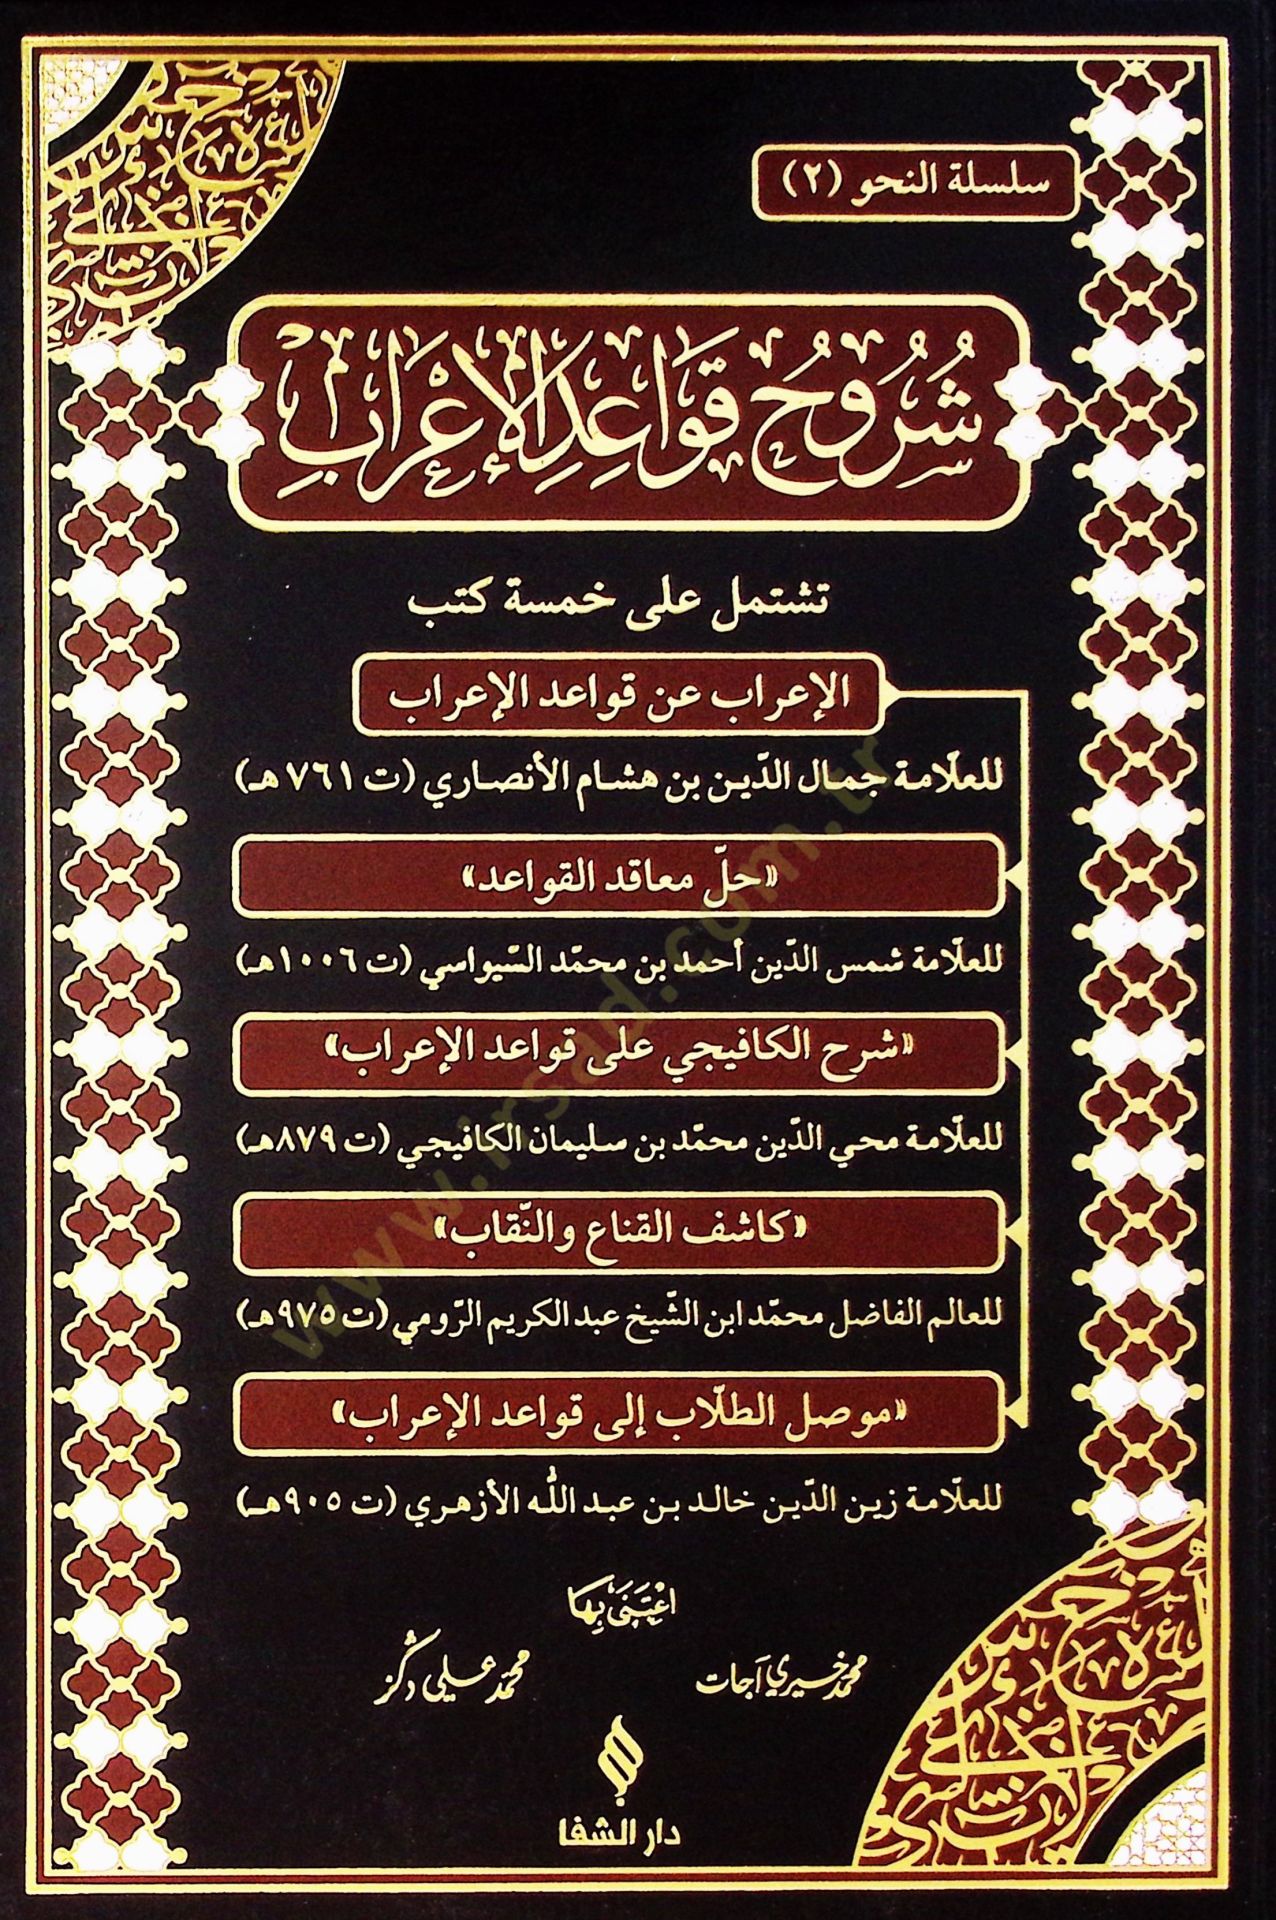 سلسلة النحو (٢)
شُرُوحُ قَوَاعِدِ الْإِعْرَابِ
تشتمل على خمسة كتب
الإعراب عن قواعد الإعراب
للعلّامة جمال الدّين بن هشام الأنصاري (ت ٧٦١ هـ)
«حلّ معاقد القواعد»
للعلّامة شمس الدّين أحمد بن محمّد السّيواسي (ت ١٠٠٦هـ)
«شرح الكافيجي على قواعد الإعراب»
للعلّامة محي الدّين محمّد بن سليمان الكافيجي (ت ٨٧٩هـ)
«كاشف القناع والنّقاب»
للعالم الفاضل محمّد ابن الشّيخ عبد الكريم الرّومي (ت ٩٧٥هـ)
«موصل الطلّاب إلى قواعد الإعراب»
للعلّامة زين الدّين خالد بن عبد الله الأزهري (ت ٩٠٥هـ)
اعْتَنَى بِهَا
محمد خيري آجات
محمد علي دكز
دار الشفا
www.irsad.com.tr